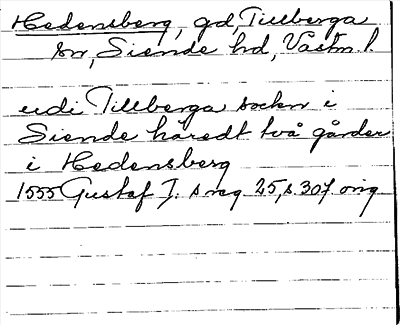 Hedensberg, gd, Tillberga
sn, Siende hd, Vastm l.
udi Tillberga sockn i
Siende häredt två gårder
i Hedensberg
1555 Gustaf I:s reg 25, s. 307 orig